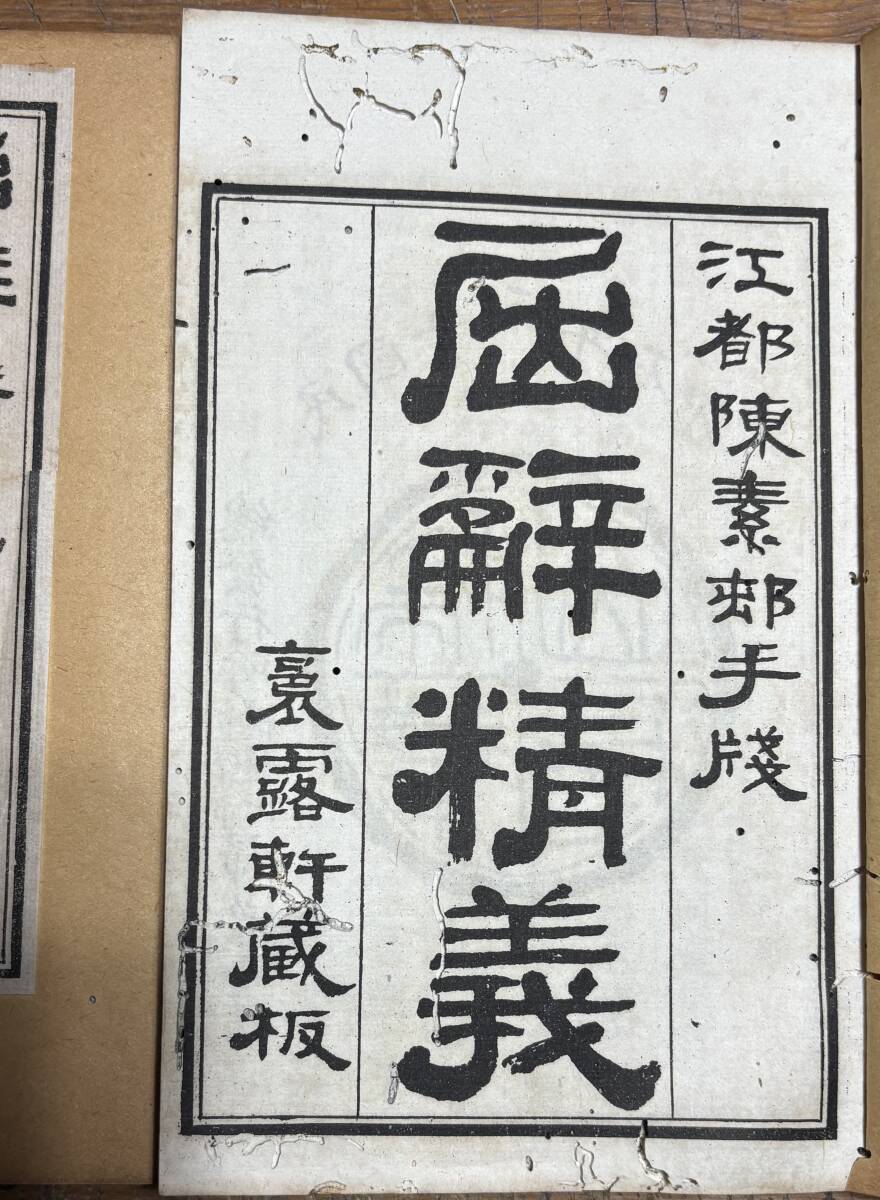 江都陳素邨手牋
屈辭精義
裛露軒藏板